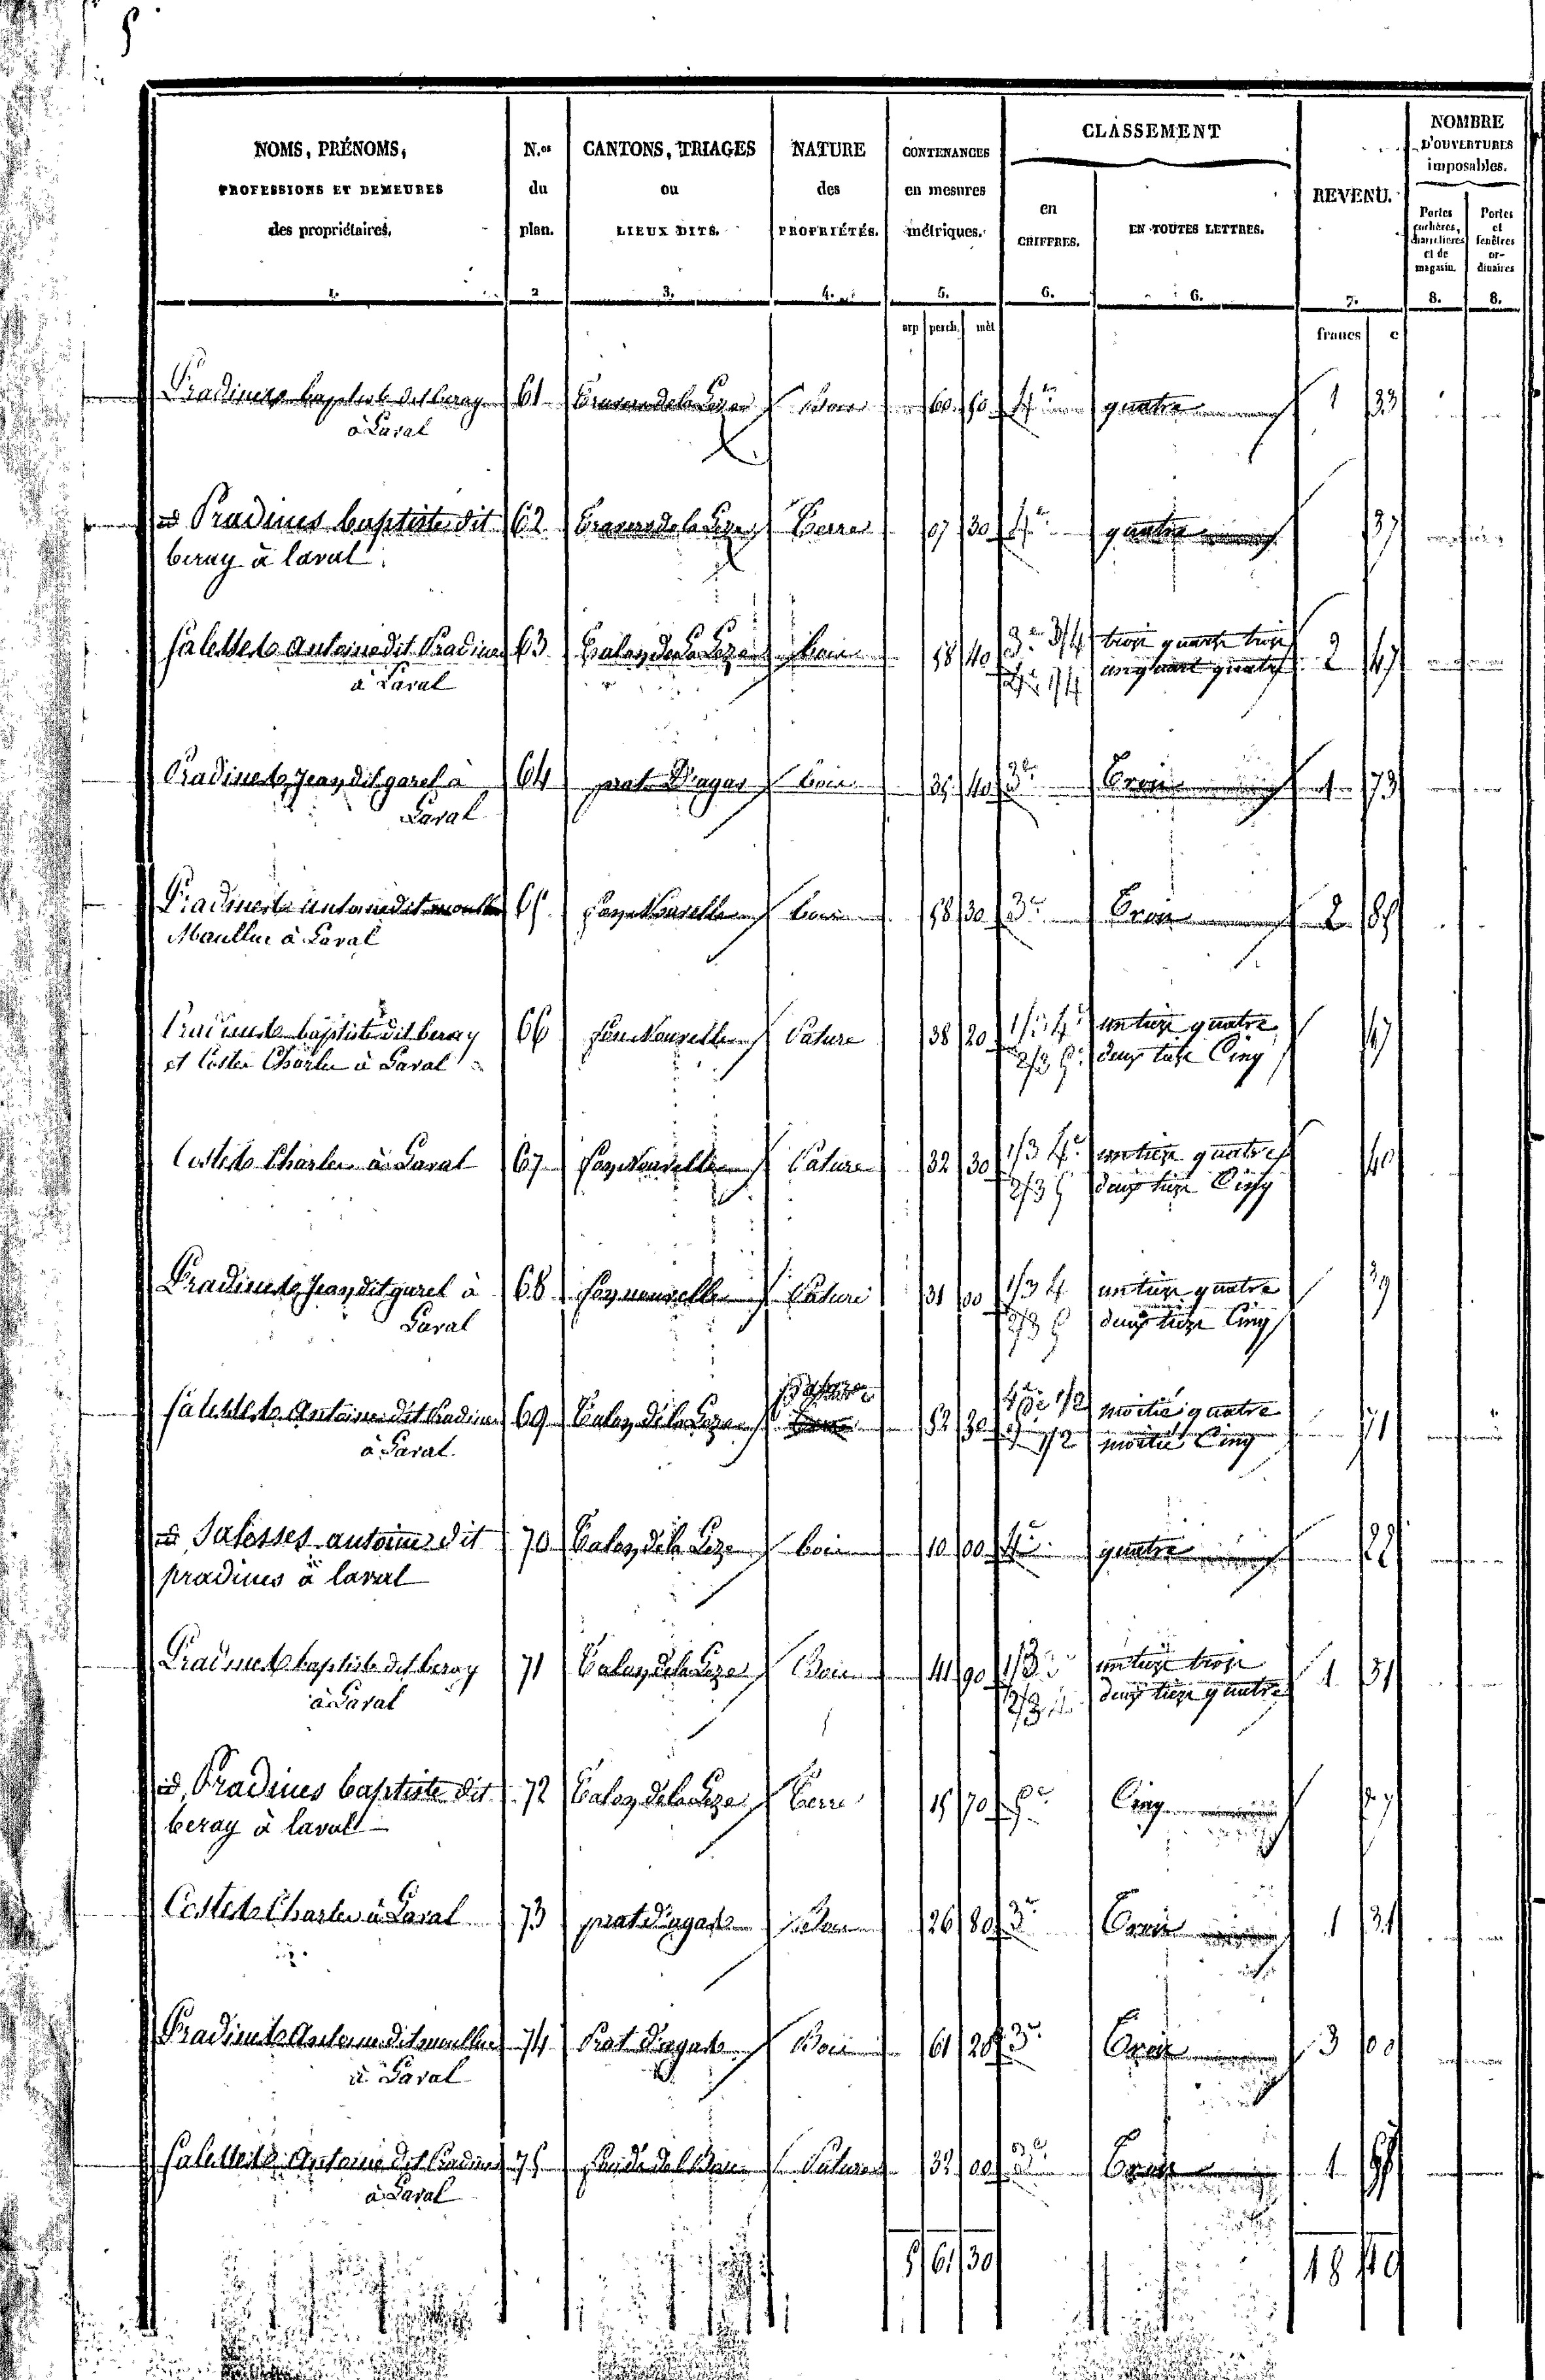 5
NOMS, PRÉNOMS, PROFESSIONS ET DEMEURES des propriétaires.
N.os du plan.
CANTONS, TRIAGES ou LIEUX DITS.
NATURE des PROPRIÉTÉS.
CONTENANCES en mesures métriques.
CLASSEMENT
en CHIFFRES.
EN TOUTES LETTRES.
REVENU.
NOMBRE D'OUVERTURES imposables.
Portes cochères, charretières et de magasin.
Portes et fenêtres ordinaires
1. 2 3. 4. 5. 6. 6. 7. 8. 8.
arp perch. mèt francs c
Pradines baptiste dit beray 61 Travers de la Leze 60 90 4e quatre 1 33
à Laval
id Pradines baptiste dit 62 Travers de la Leze Terre 07 30 4e quatre 37
beray à laval
Antoine dit Pradines 63 de la Leze bois 58 40 3e 3/4 trois quarts trois 2 47
à Laval 4e 1/4 un quart quatre
Pradines Jean dit garel à 64 prat D'agas bois 35 40 3e Trois 1 73
Laval
Pradines antoine dit 65 fon Nouvelle bois 58 30 3e Trois 2 85
à Laval
Pradines baptiste dit beray 66 fon Nouvelle Pature 38 20 1/3 4e un tiers quatre 47
et Coste Charles à Laval 2/3 5e deux tiers Cinq
Coste Charles à Laval 67 fon Nouvelle Pature 32 30 1/3 4e un tiers quatre 40
2/3 5 deux tiers Cinq
Pradines Jean dit garel à 68 fon nouvelle Pature 31 00 1/3 4 un tiers quatre 39
Laval 2/3 5 deux tiers Cinq
Antoine dit Pradines 69 de la Leze Pature 52 30 4e 1/2 moitié quatre 71
à Laval 5 1/2 moitié Cinq
id Salesses antoine dit 70 de la Leze bois 10 00 4e quatre 22
pradines à laval
Pradines baptiste dit beray 71 de la Leze Bois 41 90 1/3 3e un tiers trois 1 31
à Laval 2/3 4 deux tiers quatre
id, Pradines baptiste dit 72 de la Leze Terre 15 70 5e Cinq 27
beray à laval
Coste Charles à Laval 73 prat d'agas Bois 26 80 3e Trois 1 31
Pradines Antoine dit 74 Prat d'agas Bois 61 20 3e Trois 3 00
à Laval
Antoine dit Pradines 75 Pature 32 00 3e Trois 1
à Laval
5 61 30 18